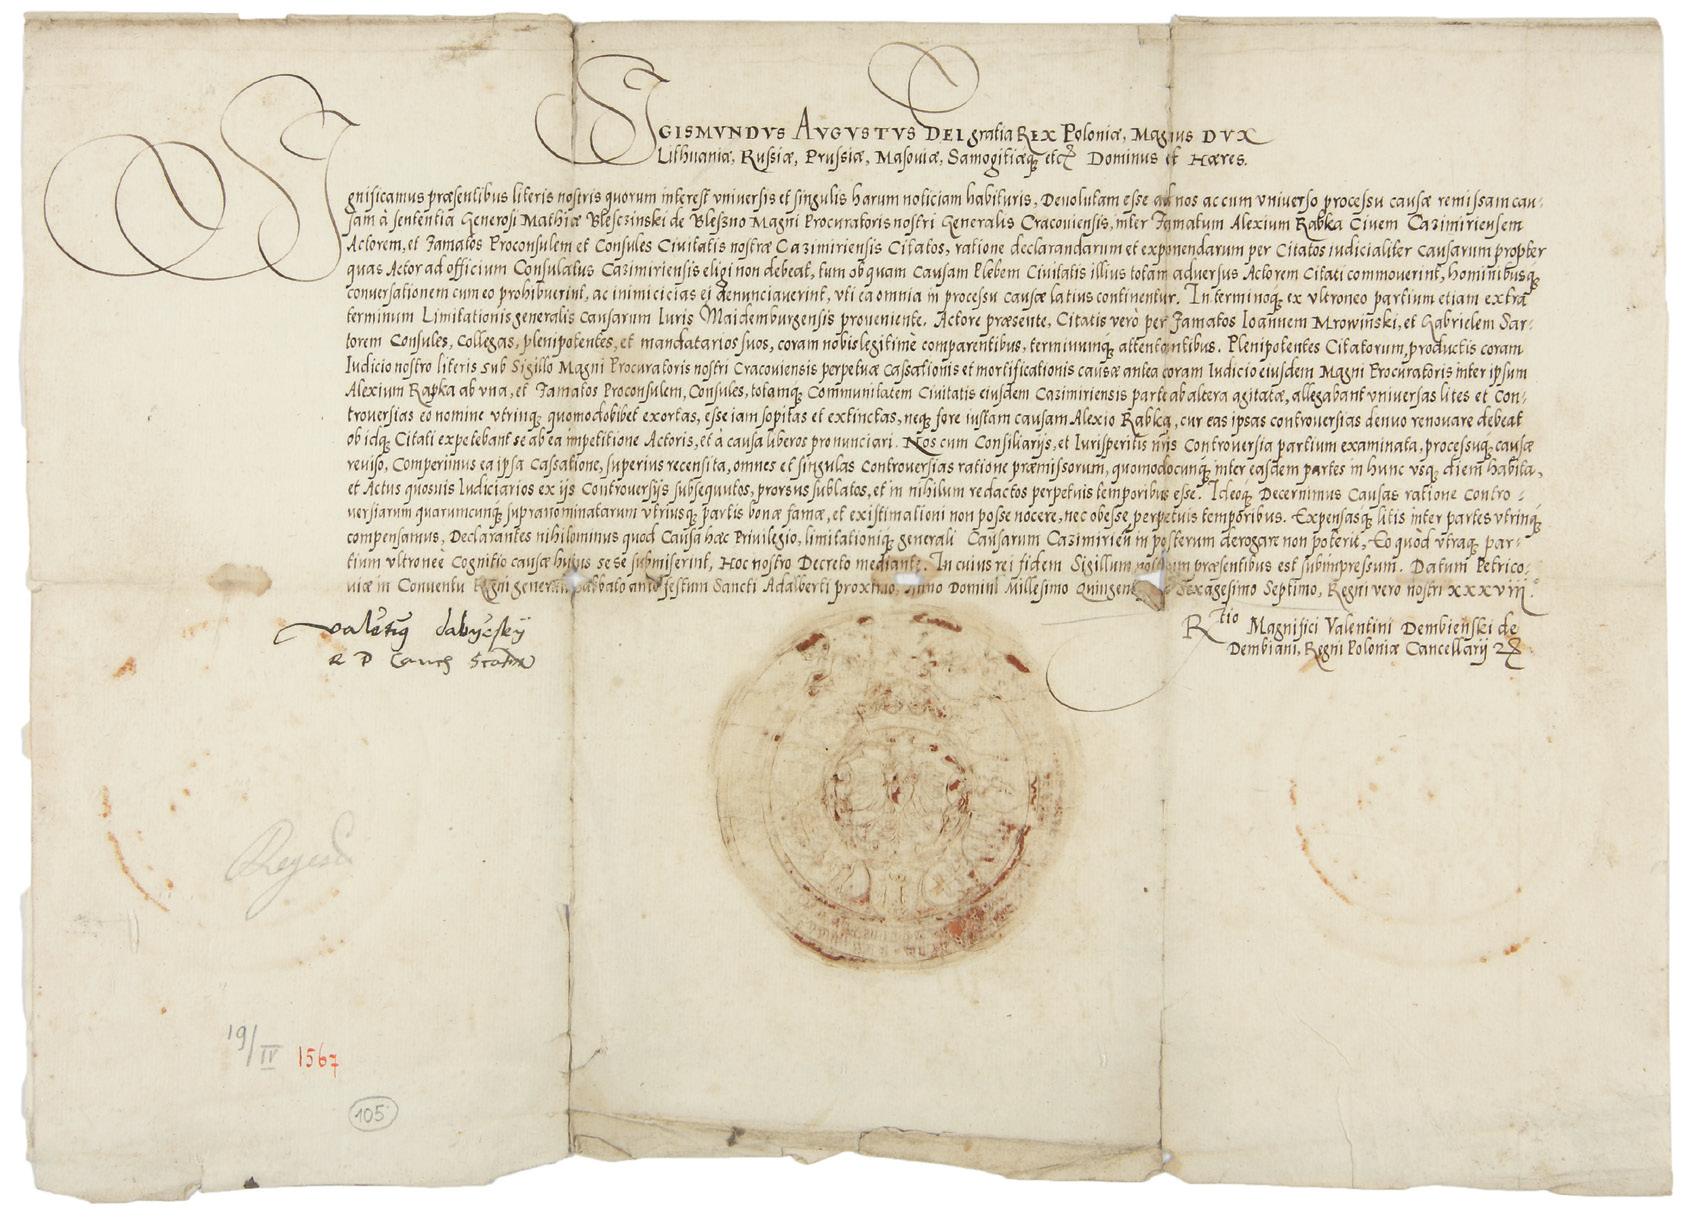 SIGISMVNDVS AVGVSTVS DEI gratia REX Poloniæ, Magnus DVX
Lithuaniæ, Russiæ, Prussiæ, Masouiæ, Samogitiæq; etc Dominus et Hæres.
Significamus præsentibus literis nostris quorum interest vniuersis et singulis harum noticiam habituris, Deuolutam esse ad nos ac cum vniuerso processu causæ remissam cau-
sam à sententia Generosi Mathiæ Blesczinski de Bleszno Magni Procuratoris nostri Generalis Cracouiensis, inter Famatum Alexium Rabka Ciuem Cazimiriensem
Actorem, et Famatos Proconsulem et Consules Ciuitatis nostræ Cazimiriensis Citatos, ratione declarandarum et exponendarum per Citatos iudicialiter causarum propter
quas Actor ad officium Consulatus Cazimiriensis eligi non debeat, tum ob quam Causam Plebem Ciuitatis illius totam aduersus Actorem Citati commouerint, hominibusq;
conuersationem cum eo prohibuerint, ac inimicicias ei denunciauerint, vti ea omnia in processu causæ latius continentur. In terminoq; ex vltroneo partium etiam extra
terminum Limitationis generalis causarum Iuris Maidemburgensis proueniente. Actore præsente, Citatis verò per Famatos Ioannem Mrowinski, et Gabrielem Sar-
torem Consules, Collegas, plenipotentes, et mandatarios suos, coram nobis legitimè comparentibus, terminumq; attentantibus. Plenipotentes Citatorum, productis coram
Iudicio nostro literis sub Sigillo Magni Procuratoris nostri Cracouiensis perpetuæ Cassationis et mortificationis causæ antea coram Iudicio eiusdem Magni Procuratoris inter ipsum
Alexium Rapka ab vna, et Famatos Proconsulem, Consules, totamq; Communitatem Ciuitatis eiusdem Cazimiriensis parte ab altera agitatæ, allegabant vniuersas lites et Con-
trouersias eò nomine vtrinq; quomodolibet exortas, esse iam sopitas et extinctas, neq; fore iustam causam Alexio Rabka, cur eas ipsas controuersias denuo renouare debeat
ob idq; Citati expetebant se ab ea impetitione Actoris, et à causa liberos pronunciari. Nos cum Consiliarijs, et Iurisperitis nris Controuersia partium examinata, processuq; causæ
reuiso, Comperimus ea ipsa Cassatione, superius recensita, omnes et singulas Controuersias ratione præmissorum, quomodocunq; inter easdem partes in hunc vsq; diem habita,
et Actus quosuis Iudiciarios ex ijs Controuersijs subsequutos, prorsus sublatos, et in nihilum redactos perpetuis temporibus esse. Ideoq; Decernimus Causas ratione contro-
uersiarum quarumcunq; supranominatarum vtriusq; partis bonæ famæ, et existimationi non posse nocere, nec obesse perpetuis temporibus. Expensasq; litis inter partes vtrinq;
compensamus, Declarantes nihilominus quod Causa hæc Priuilegio, limitationiq; generali Causarum Cazimirien in posterum derogare non poterit, Eo quòd vtraq; par-
tium vltroneè Cognitio causæ huius sese submiserint, Hoc nostro Decreto mediante. In cuius rei fidem Sigillum nostrum præsentibus est subimpressum. Datum Petrico-
uiæ in Conuentu Regni generali Sabbato ante festum Sancti Adalberti proximo, Anno Domini Millesimo Quingentesimo Sexagesimo Septimo, Regni vero nostri XXXVIII.
R tio Magnifici Valentini Dembienski de
Dembiani, Regni Poloniæ Cancellarij
19/IV 1567
105